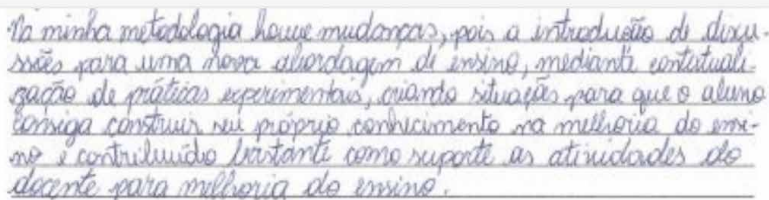 Na minha metodologia houve mudanças, pois a introdução de discu-
ssões para uma nova abordagem de ensino, mediante contextuali-
zação de práticas experimentais, criando situações para que o aluno
consiga construir seu próprio conhecimento na melhoria do ensi-
no e contribuído bastante como suporte as atividades do
docente para melhoria do ensino.